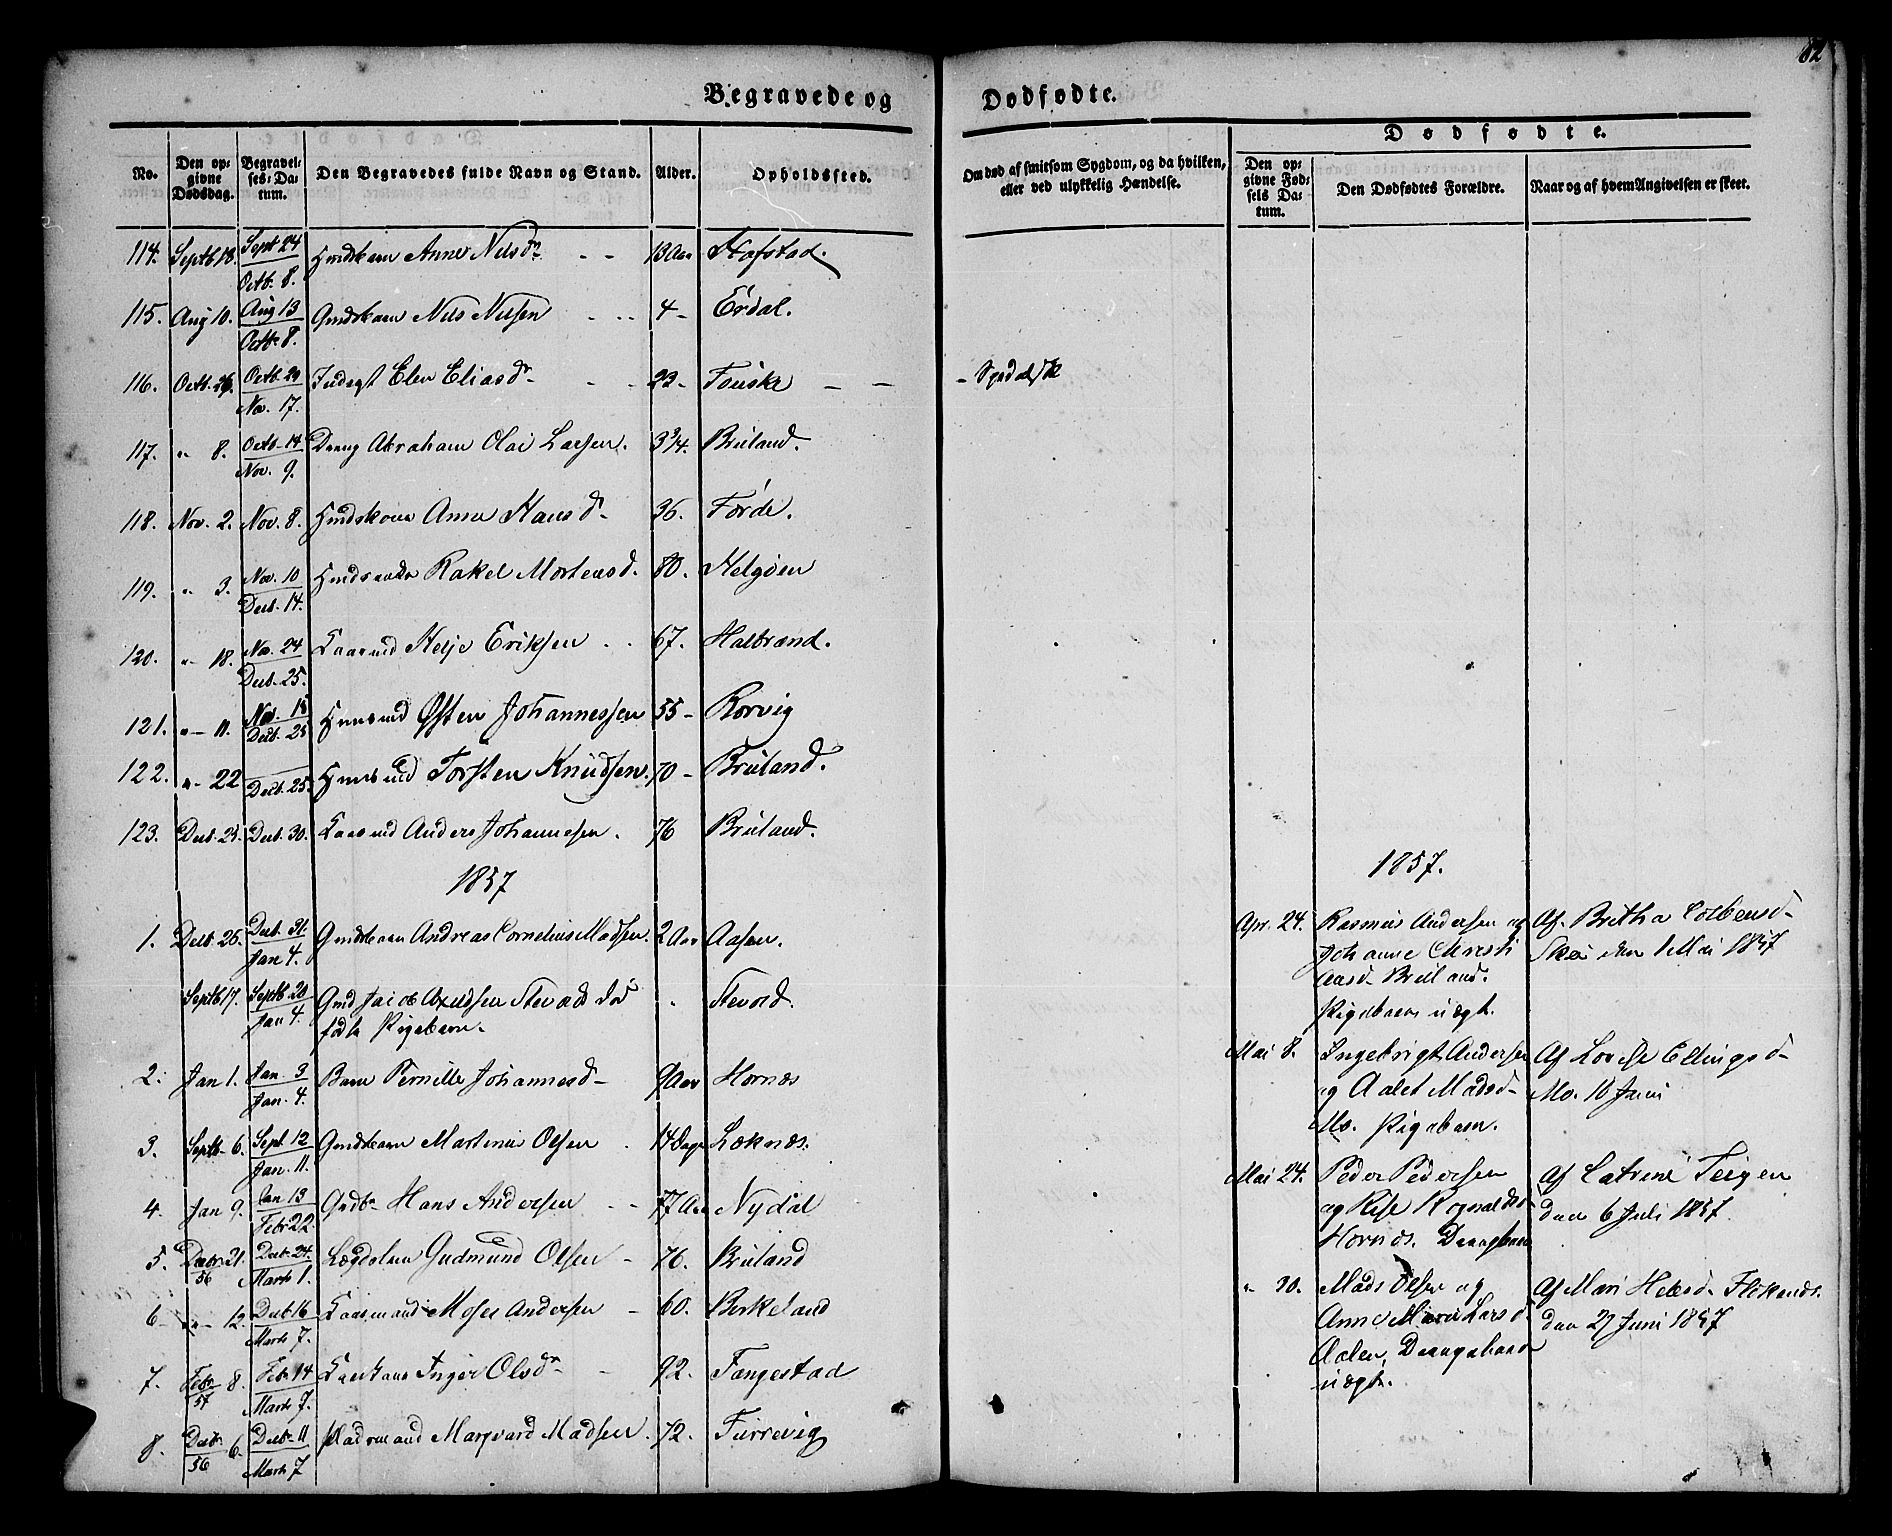 82
Begravede og Dødfødte.
No. Den opgivne Dødsdag. Begravelses-Datum. Den Begravedes fulde Navn og Stand. Alder. Opholdssted. Om død af smitsom Sygdom, og da hvilken, eller ved ulykkelig Hændelse.
Dødfødte.
Den opgivne Fødsels Datum. Den Dødfødtes Forældre. Naar og af hvem Angivelsen er skeet.
114. Septb 18. Sept 24 Octb. 8. Anne Nilsdr 13 Aar Hafstad.
115. Aug 10. Aug 13 Octb 8. Gmdsbarn Nils Nilsen 4 - Erdal.
116. Octb. 26. Octb. 29 Nov. 17. Inderst Elen Eliasdr 22 - Fouske - - - Spedalsk
117. " 8. Octb. 14 Nov. 9. Dreng Abraham Olai Larsen. 3 3/4. Bruland.
118. Nov. 2. Nov. 8. Anne Hansd. 36. Førde.
119. " 3. Nov. 10 Decb. 14. Rakel Mortensd. 80. Helgøen
120. " 18. Nov. 24 Decb. 25. Kaarmd Helje Eriksen 67. Halbrand.
121. " 11. Nov. 18 Decb. 25 Østen Johannessen 55 - Rørvig
122. " 22 Decb. 25. Torsten Knudsen. 70 - Bruland.
123. Decb. 23. Decb. 30. Kaarmd Anders Johannesen. 76 Bruland.
1857
1. Decb. 26. Decb. 31. Jan 4. Gmdsbarn Andreas Cornelius Madsen. 2 Aar Aasen.
Septb 17. Septb. 20 Jan 4. Gmd Jacob Axelsen Stevold død " Stevold.
født Pigebarn.
2. Jan 1. Jan. 3 Jan. 4. Barn Pernille Johannesd 9 Aar Hornæs
3. Septb. 6. Sept. 12 Jan. 11. Gmdsbarn Martinus Olsen 14 Dage Løknæs.
4. Jan 9. Jan 13 Febr 22. Hans Andersen 77 Aar Nydal
5. Decbr 21. 56 Decb. 24. Marts 1. Lægdslem Gudmund Olsen - 76. Bruland
6 - " - 12. Decb. 16 Marts 7. Kaarmand Moses Andersen - 60. Birkeland
7. Febr 57 8. Febr 14 Marts 7. Kaarkone Inger Olsdr - 92. Fangestad
8. Decb. 56 6. Decb. 11 Marts 7 Pladsmand Marqvard Madsen. 72. Furrevig
1857.
Apr. 24. Rasmus Andersen og Af Britha Colbensd
Johanne Christi Skei den 1 Mai 1857
ansd. Bruland.
Pigebarn uægt.
Mai 8. Ingebrigt Andersen Af Lovise Ellingsd
og Aalet Madsd Mo. 10 Juni
Mo. Pigebarn.
Mai 24. Peder Pedersen Af Catrine Teigen
og Rise Rognaldsd den 6 Juli 1857.
Hornæs. Drengebarn
" 30. Mads Olsen og Af Mari Helsed Flekenæs.
Anne Marie Larsd. den 27 Juni 1857
Aalen, Drengebarn
uægt.